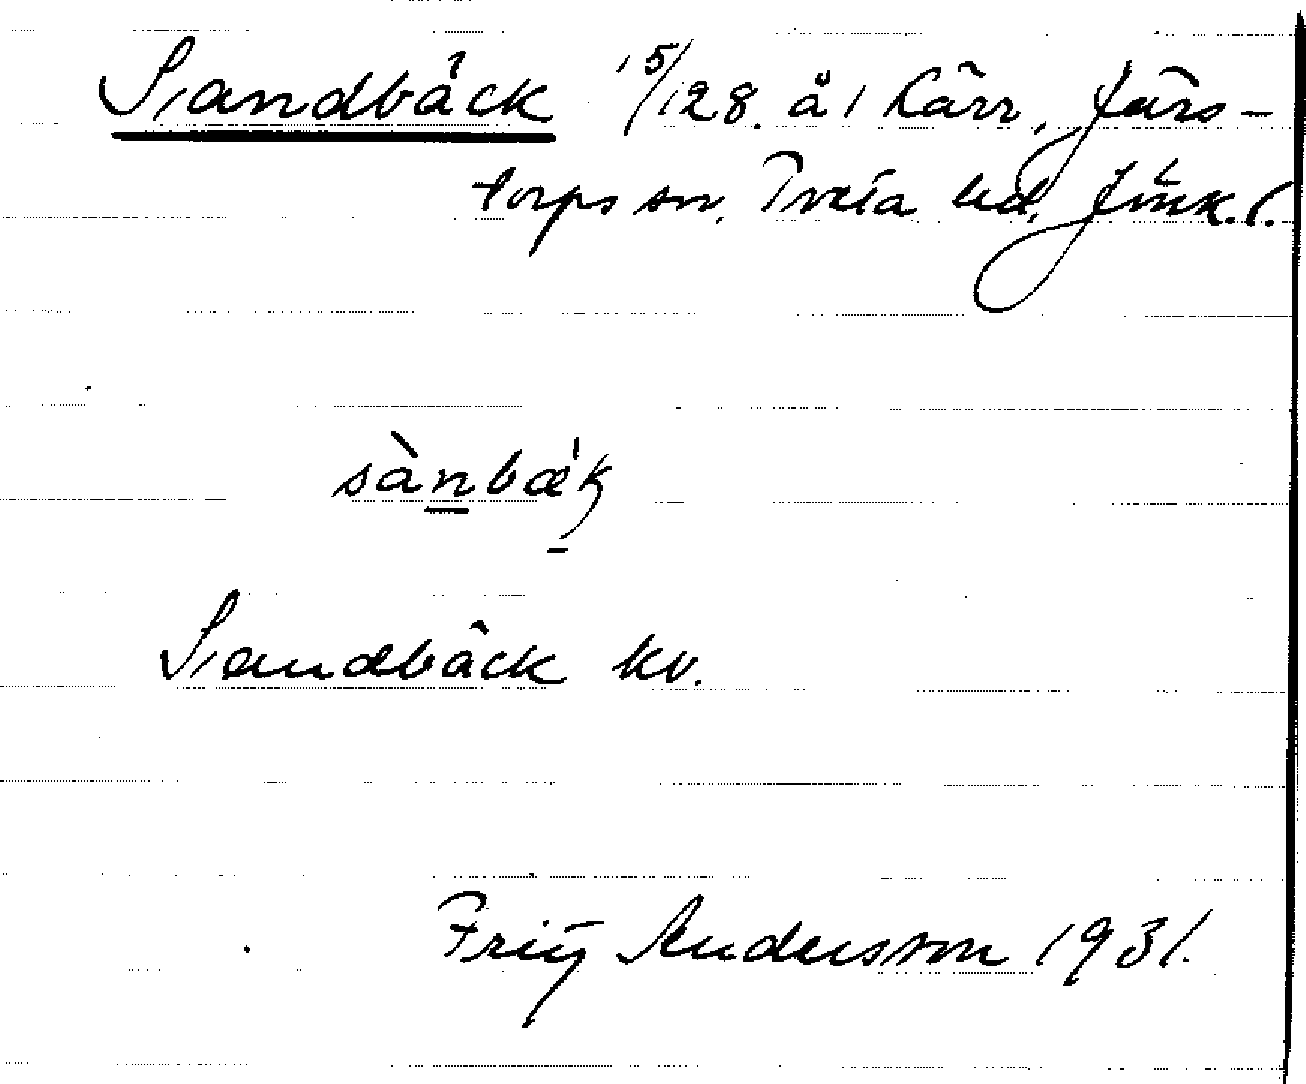 Sandbäck 15/128. å 1 Kärr, Järs-
torps sn. Tveta hd. Jönk. l.
sànbæ'k
Sandbäck kv.
Fritz Andersson 1931.